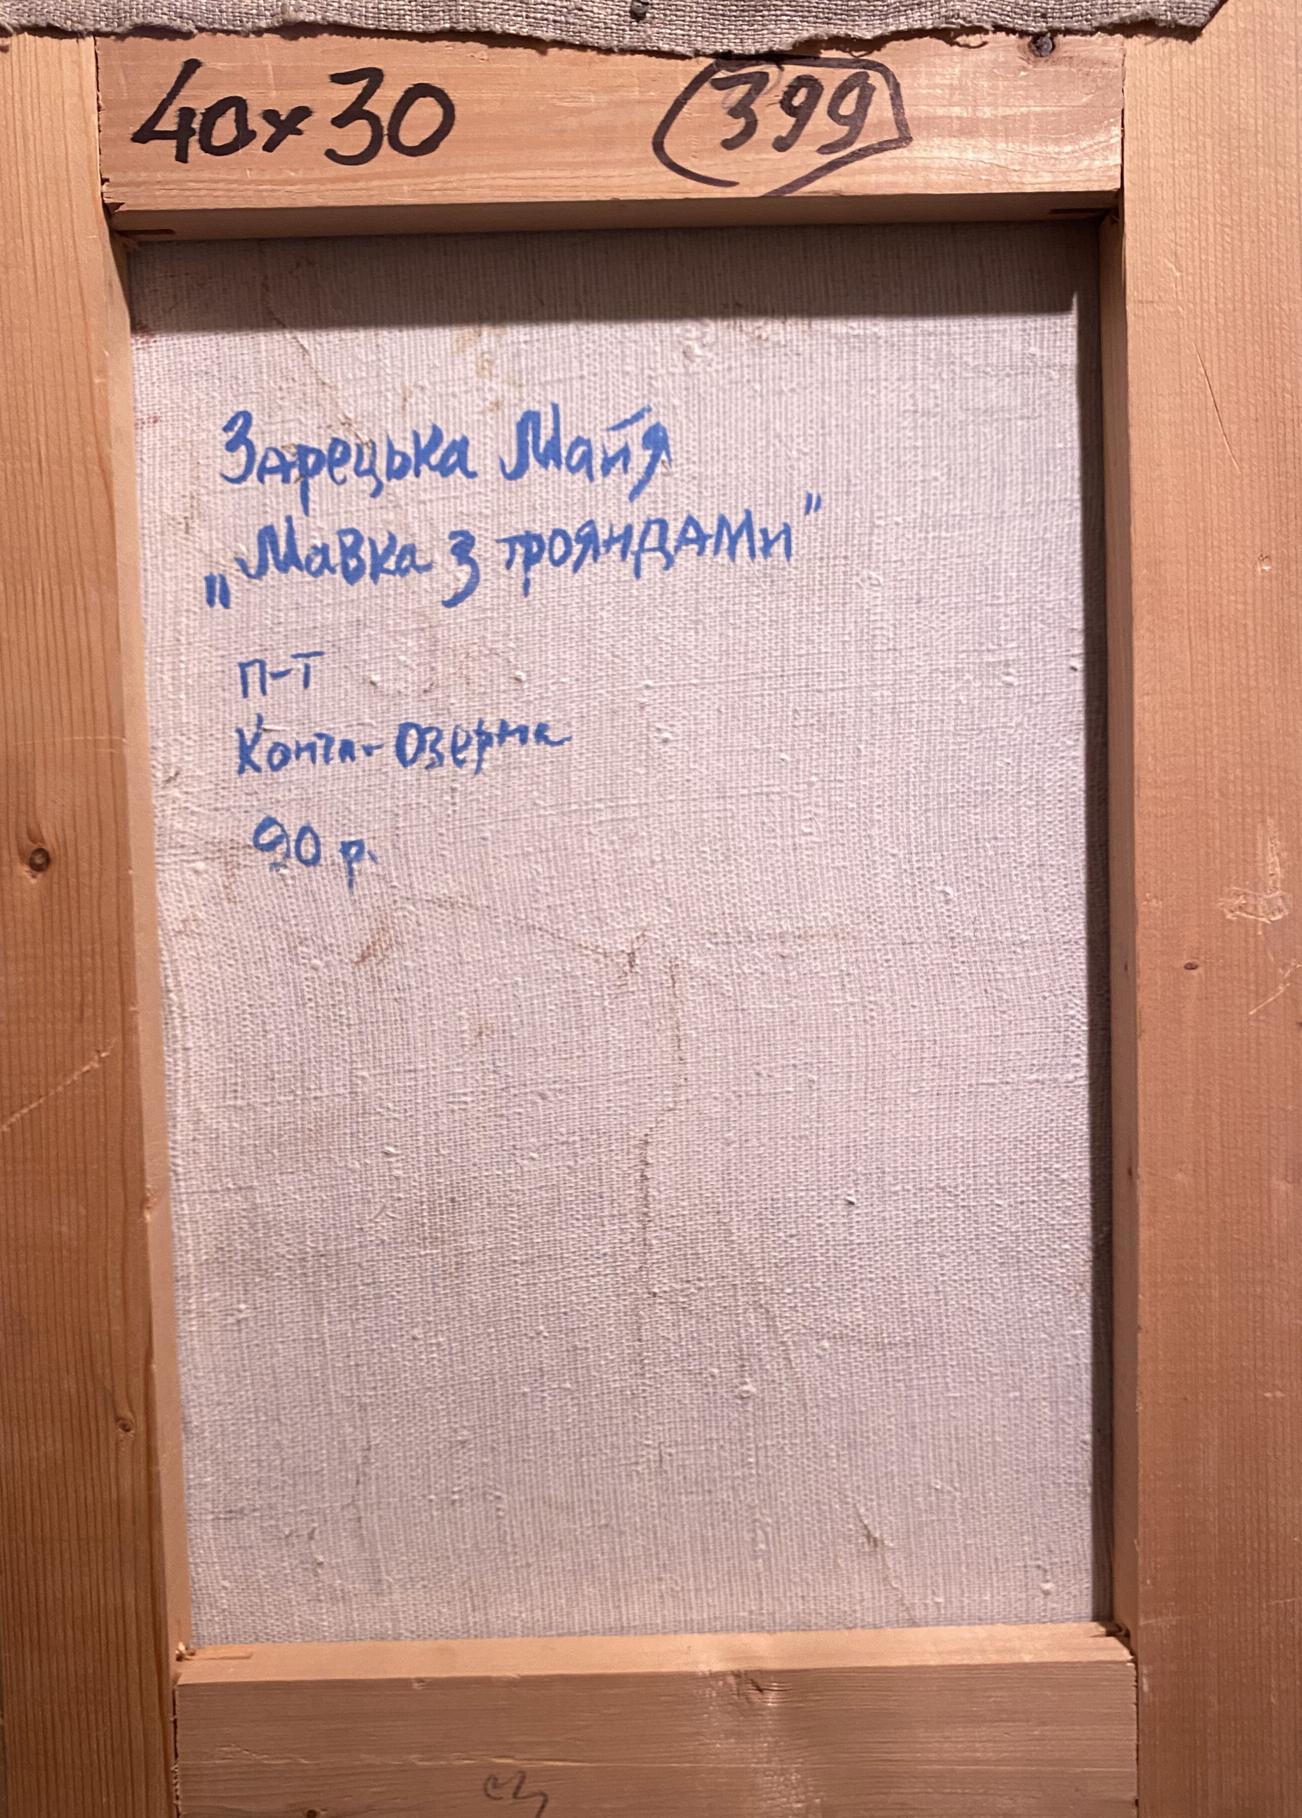 40х30 (399)
Зарецька Майя
„Мавка з трояндами"
п-т
Конча-Озерна
90 р.